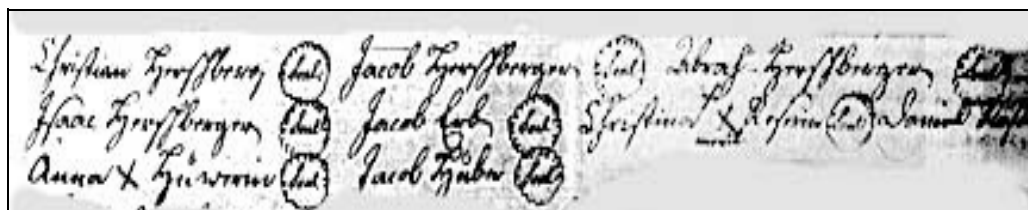 Christian Hershberg seal Jacob Hershberger seal Abrah. Hershberger seal
Isaac Hershberger seal Jacob Erb seal Christina X seal Daniel
Anna X seal Jacob Huber seal